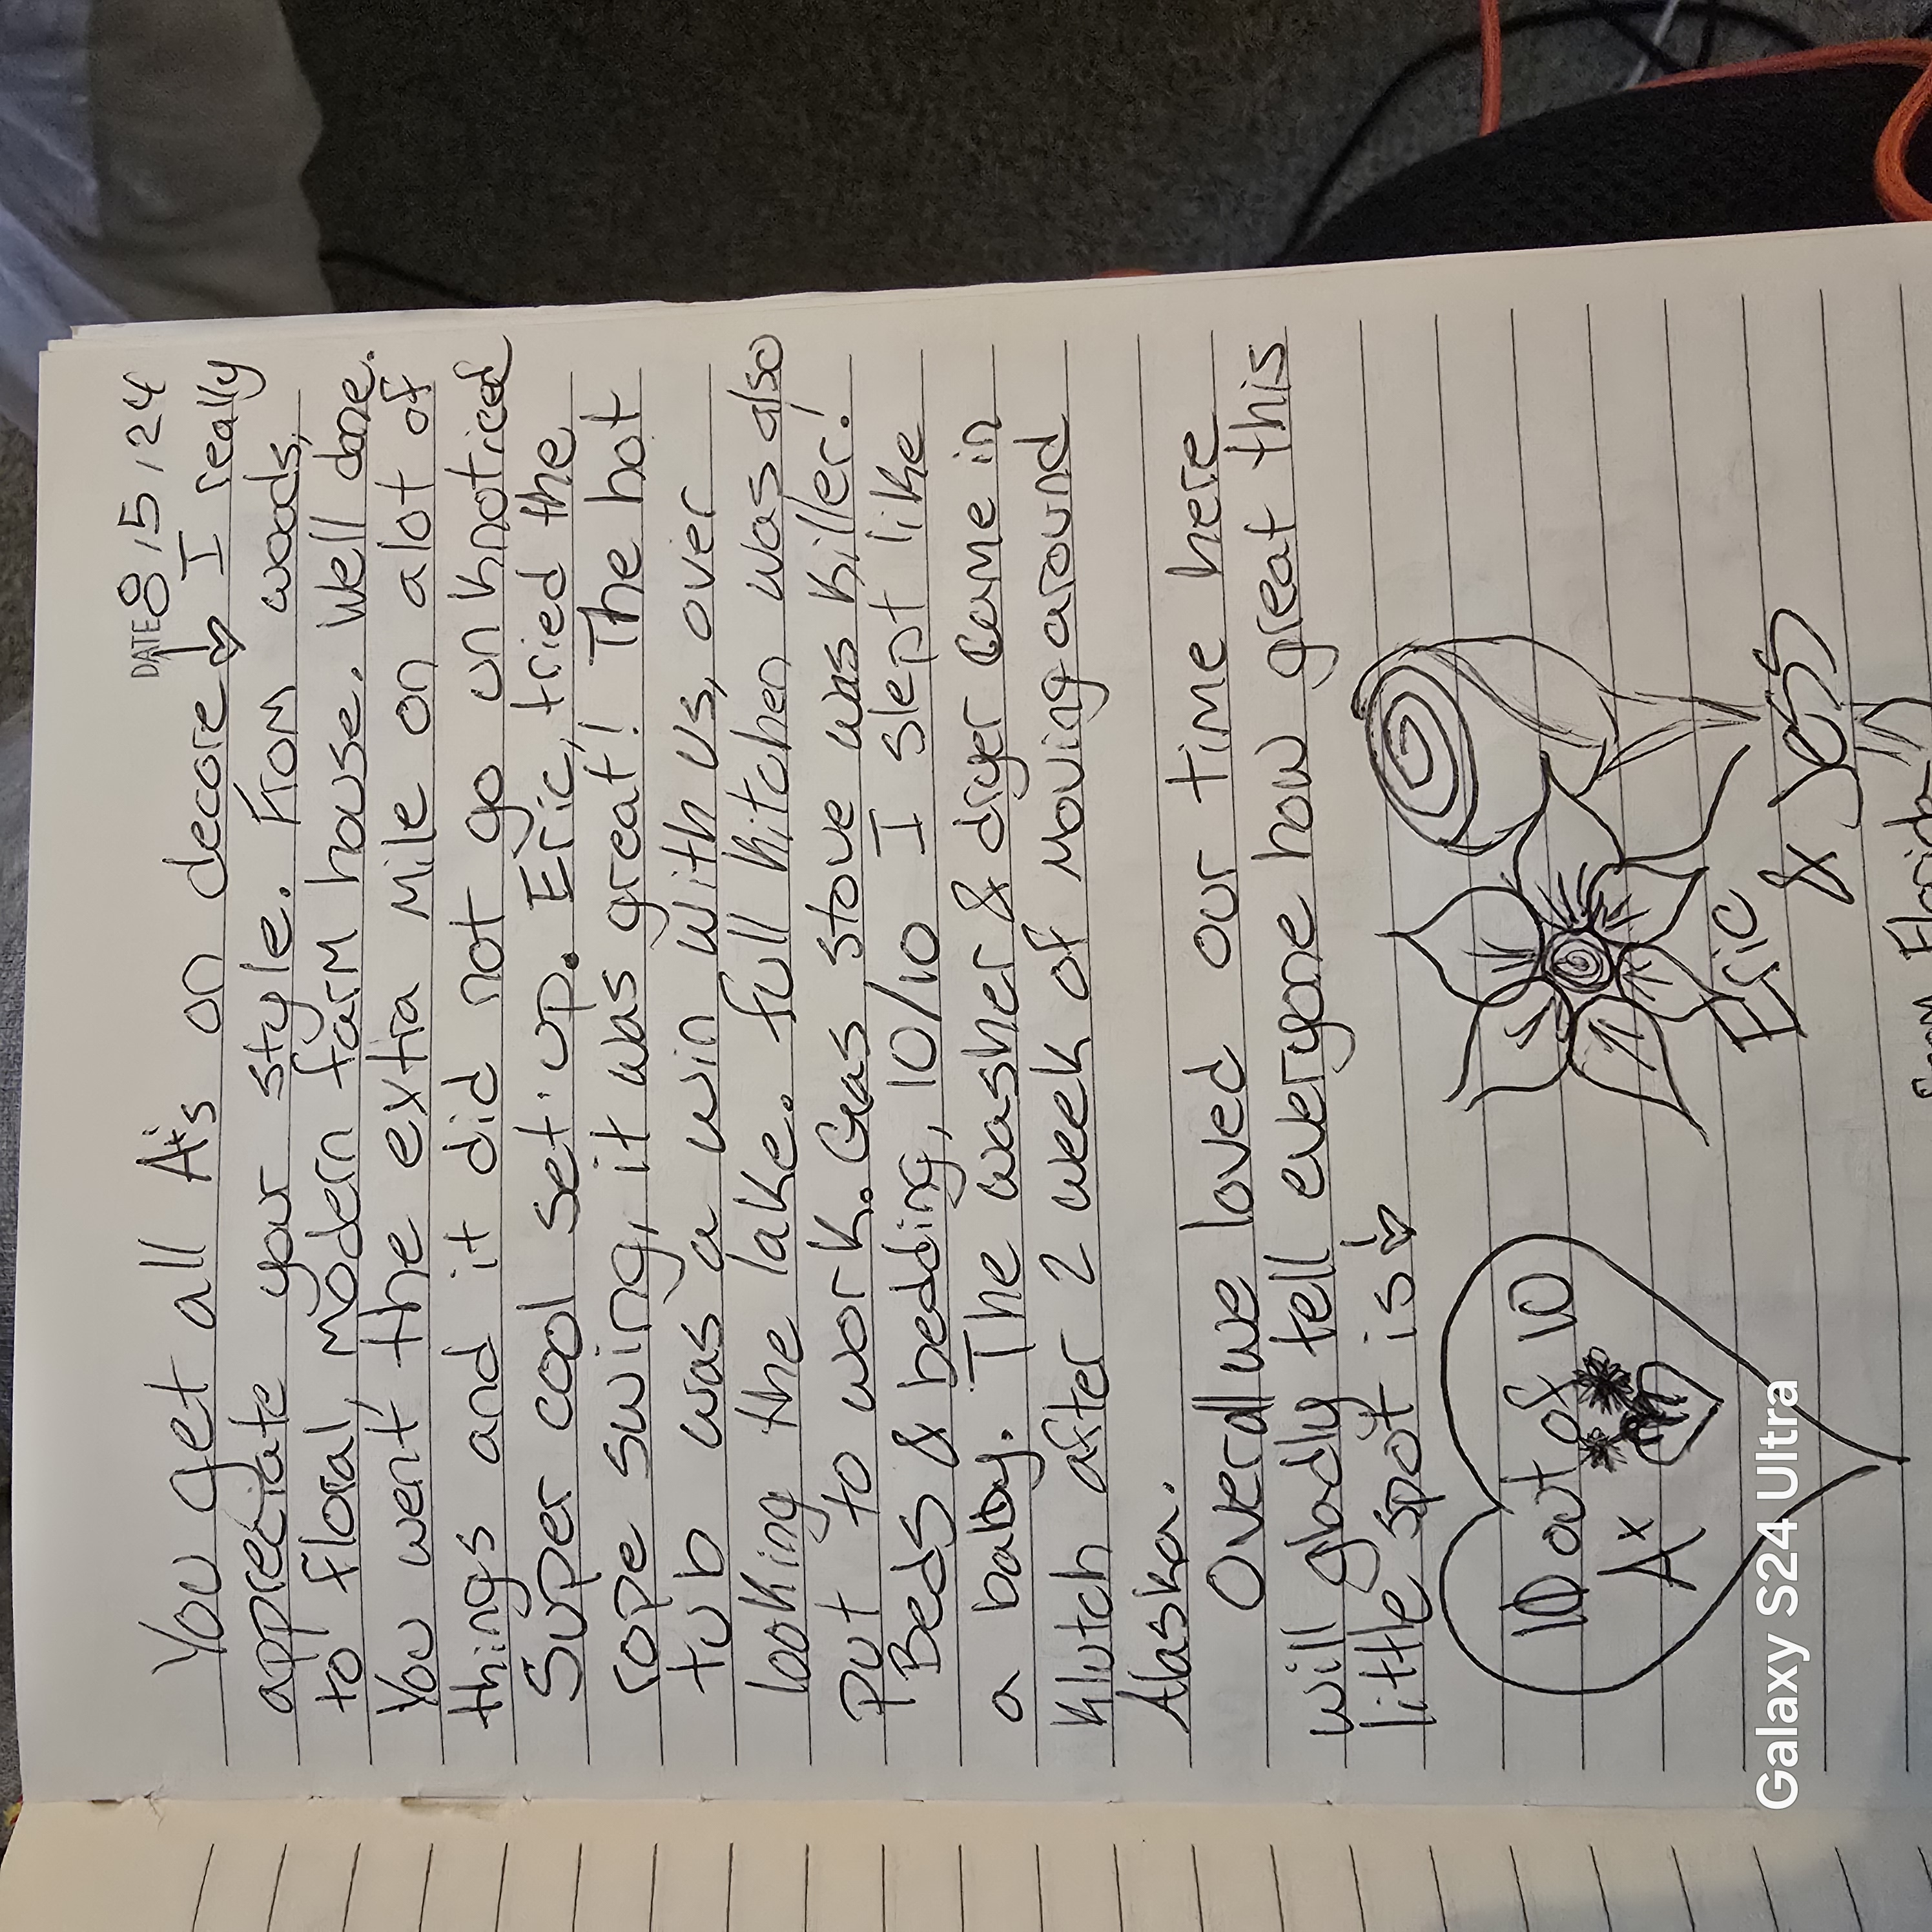 DATE 8/15/24
You get all A's on decore! ♡ I really
appreciate your style. From woods,
to floral, modern farm house. Well done.
You went the extra mile on alot of
things and it did not go unknoticed
Super cool set up. Eric, tried the
rope swing, it was great! The hot
tub was a win with us, over
looking the lake. full kitchen was also
put to work. Gas stove was killer!
Beds & bedding, 10/10 I slept like
a baby. The washer & dryer came in
klutch after 2 week of moving around
Alaska.
Overall we loved our time here
will gladly tell everyone how great this
little spot is! ♡
10 out of 10
A+
Eric
&
From Florida
Galaxy S24 Ultra